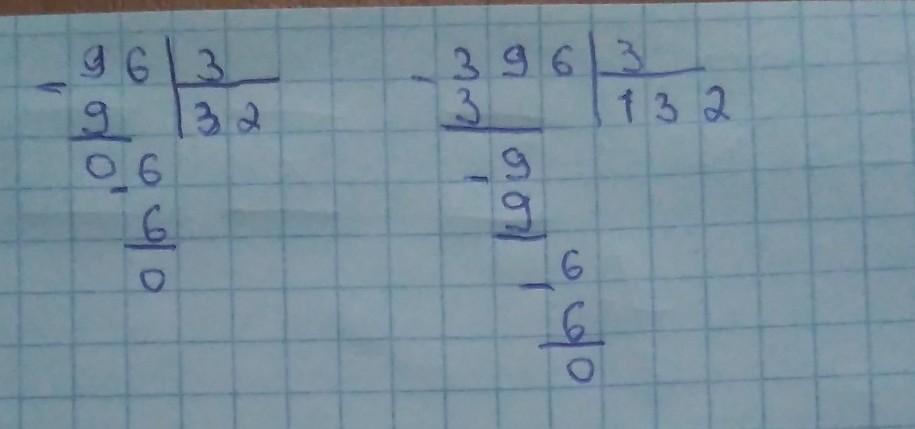 - 96 | 3
9 | 32
0 - 6
6
0
- 396 | 3
3 | 132
- 9
9
- 6
6
0